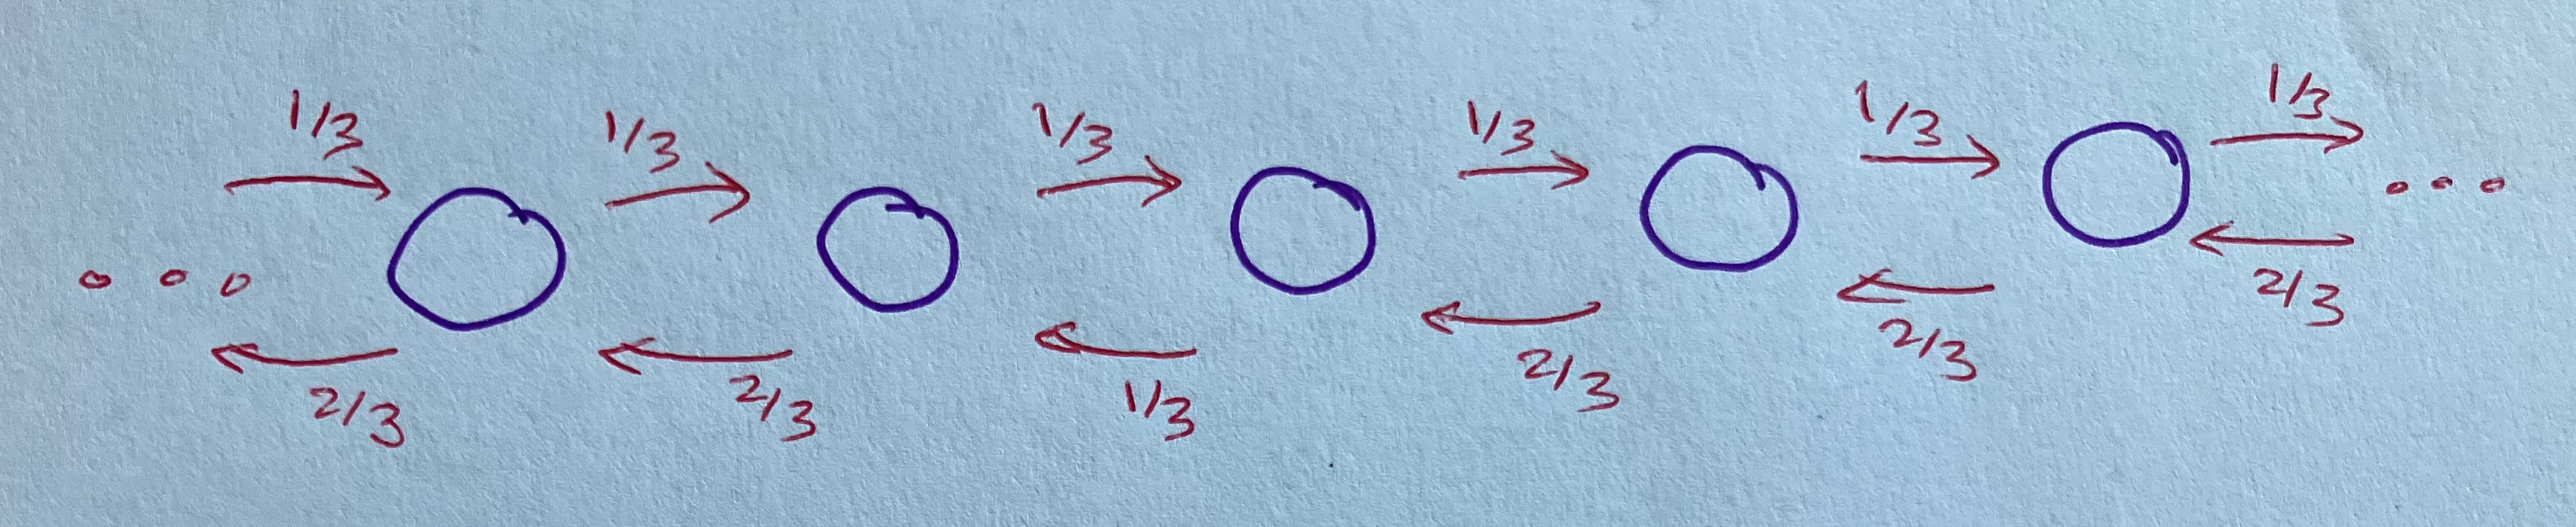 1/3 1/3 1/3 1/3 1/3 1/3
2/3 2/3 1/3 2/3 2/3 2/3